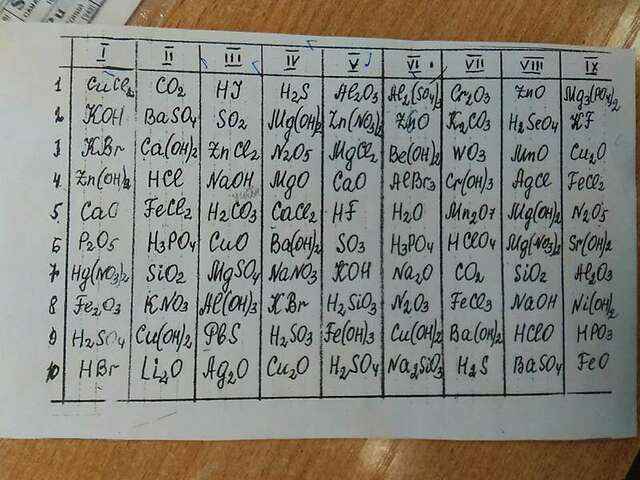 I II III IV V VI VII VIII IX
1 CuCl2 CO2 HJ H2S Al2O3 Al2(SO4)3 Cr2O3 ZnO Mg3(PO4)2
2 KOH BaSO4 SO2 Mg(OH)2 Zn(NO3)2 ZnO K2CO3 H2SeO4 KF
3 KBr Ca(OH)2 ZnCl2 N2O5 MgCl2 Be(OH)2 WO3 MnO Cu2O
4 Zn(OH)2 HCl NaOH MgO CaO AlBr3 Cr(OH)3 AgCl FeCl2
5 CaO FeCl2 H2CO3 CaCl2 HF H2O Mn2O7 Mg(OH)2 N2O5
6 P2O5 H3PO4 CuO Ba(OH)2 SO3 H3PO4 HClO4 Mg(NO3)2 Sr(OH)2
7 Hg(NO3)2 SiO2 MgSO4 NaNO3 KOH Na2O CO2 SiO2 Al2O3
8 Fe2O3 KNO3 Al(OH)3 KBr H2SiO3 N2O3 FeCl3 NaOH Ni(OH)2
9 H2SO4 Cu(OH)2 PbS H2SO3 Fe(OH)3 Cu(OH)2 Ba(OH)2 HClO HPO3
10 HBr Li2O Ag2O Cu2O H2SO4 Na2SiO3 H2S BaSO4 FeO